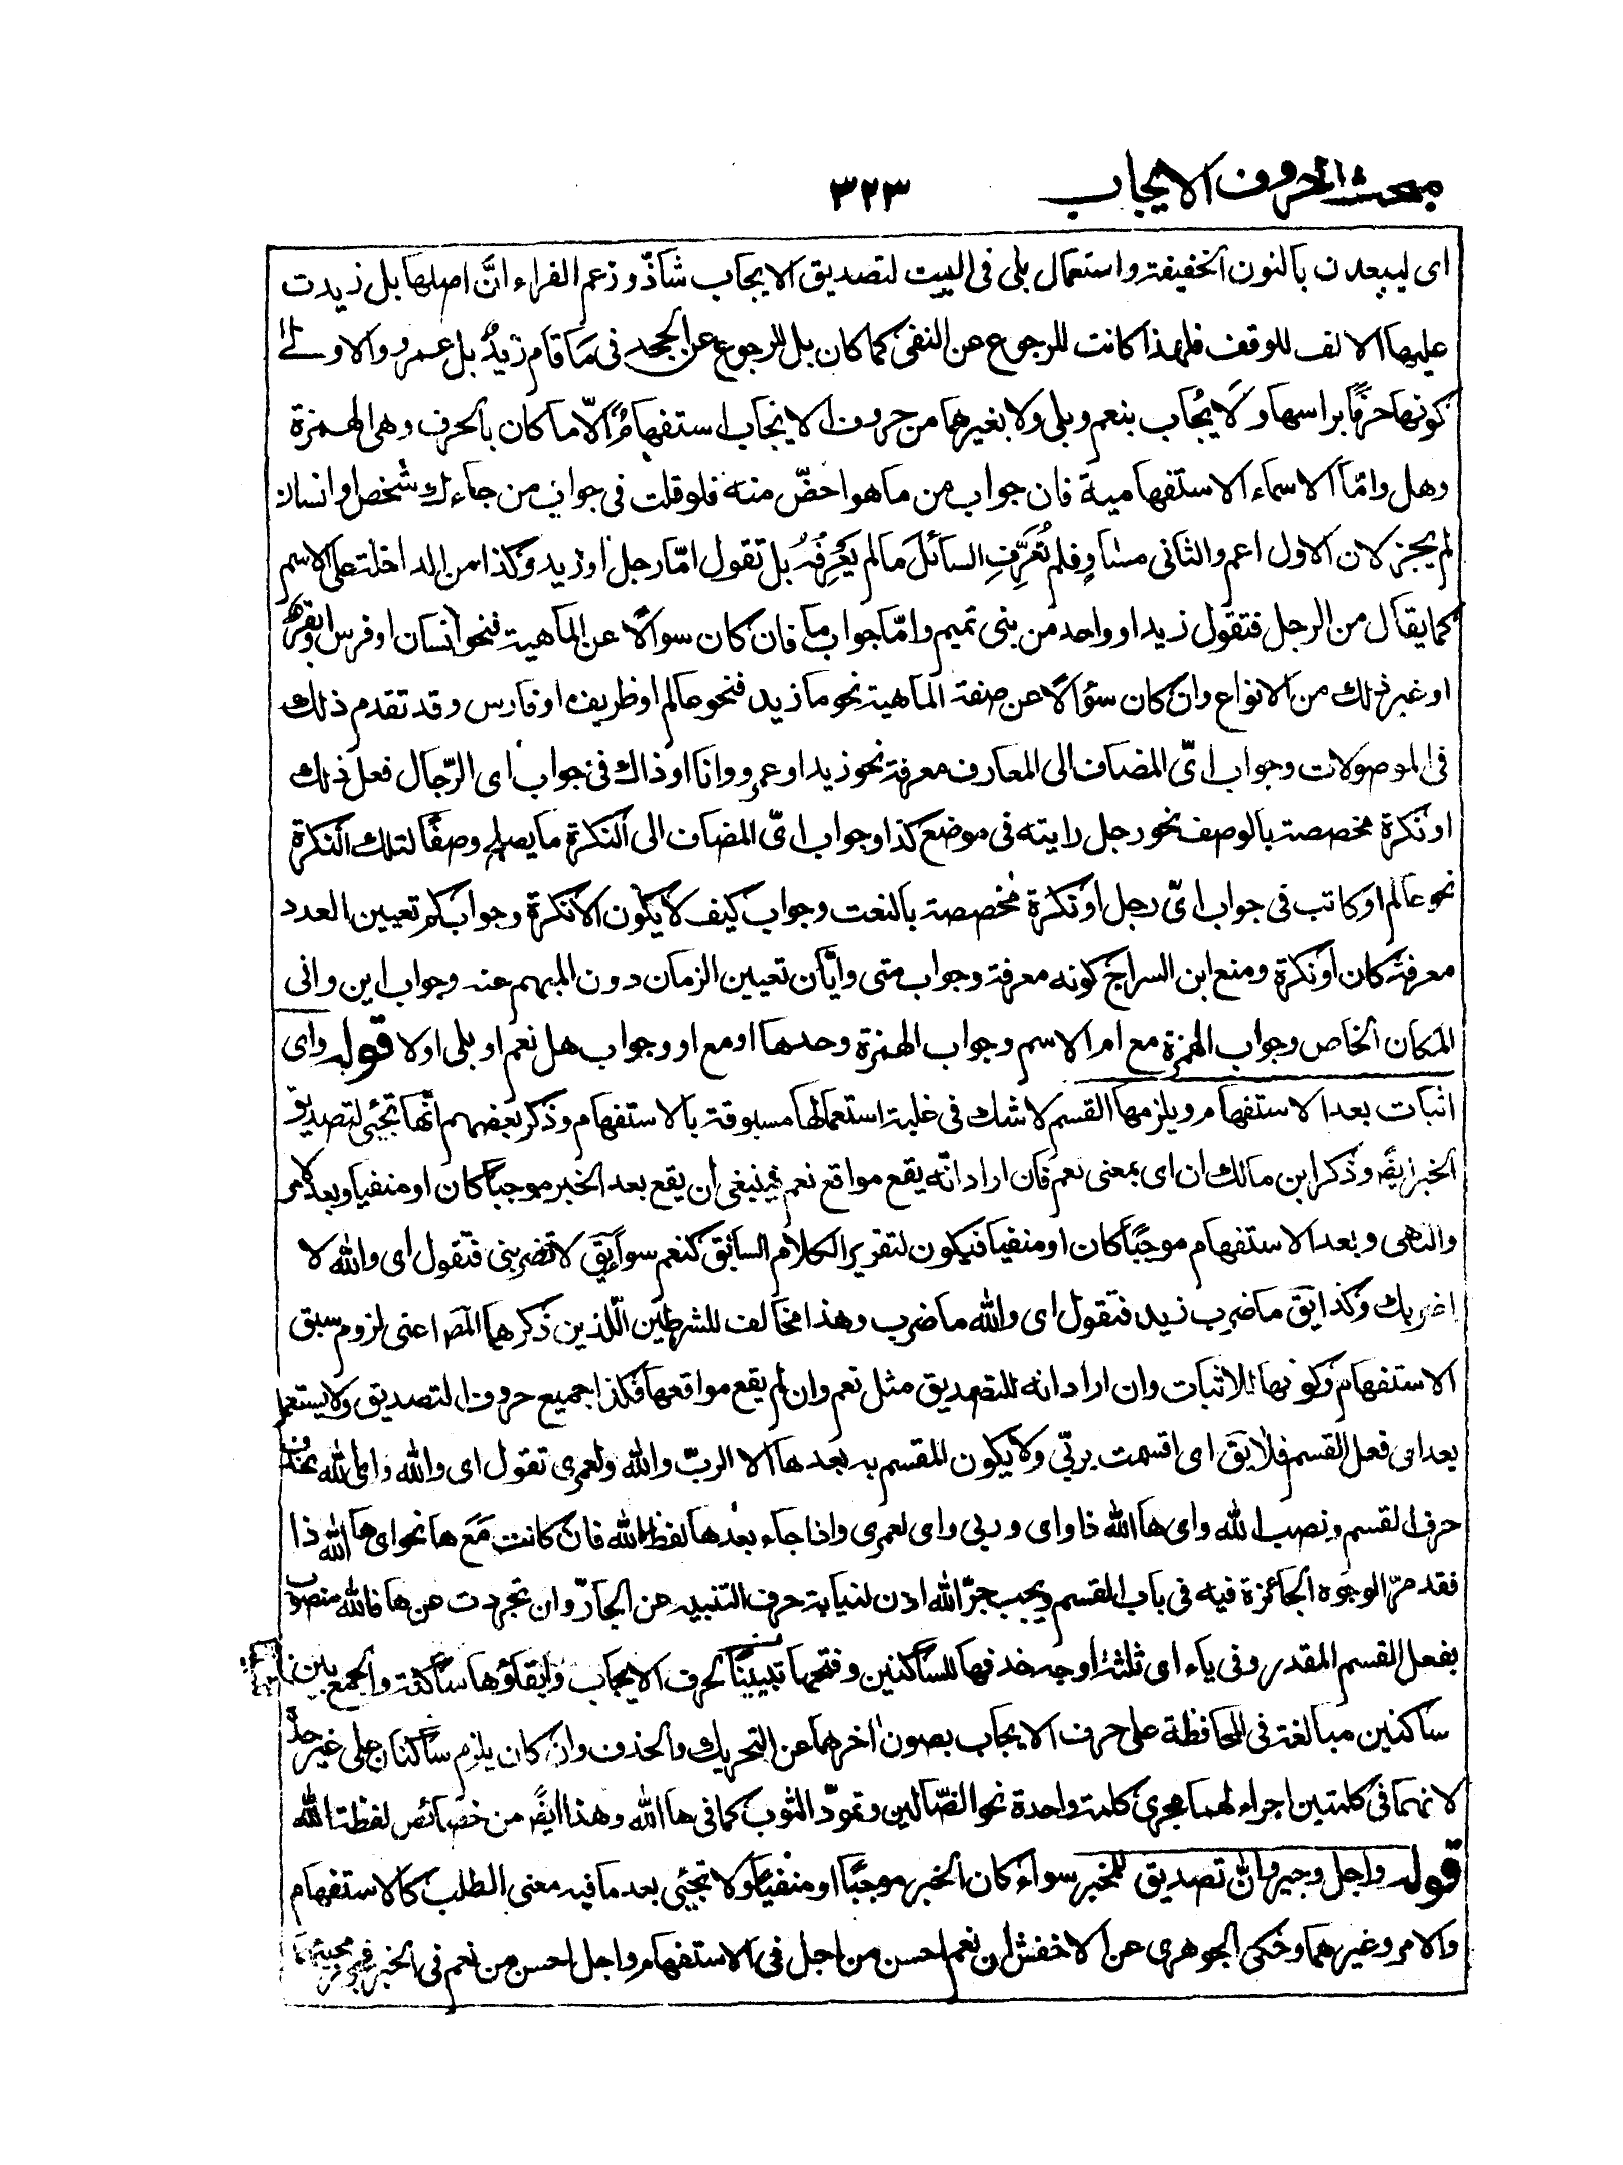 مبحث الحروف الايجاب ٣٢٣
اى ليبعدن بالنون الخفيفة واستعمال بلى فى البيت لتصديق الايجاب شاذّ وزعم الفراء انَّ اصلها بل زيدت
عليها الالف للوقف فلهذا كانت للرجوع عن النفى كما كان بل للرجوع عن الجحد فى مَا قام زيدٌ بل عمرو والاولى
كونها حرفًا براسها ولَا يُجاب بنعم وبلى ولا بغيرهما من حروف الايجاب استفهامٌ الّا ما كان بالحرف وهى الهمزة
وهل وامّا الاسماء الاستفهامية فان جواب من ما هو اخصّ منه فلو قلت فى جواب من جاءك شخص او انسان
لم يجز لان الاول اعم والثانى مساوٍ فلم تُعَرِّفِ السائلَ ما لم يَعْرِفْهُ بل تقول امّا رجل او زيد وكذا من الداخلة على الاسم
كما يقال من الرجل فتقول زيد او واحد من بنى تميم وامّا جواب ما فان كان سوالًا عن الماهية فنحو انسان او فرس او بقر
او غير ذلك من الانواع وان كان سؤالًا عن صفة الماهية نحو ما زيد فنحو عالم او ظريف او فارس وقد تقدم ذلك
فى الموصولات وجواب اىّ المضاف الى المعارف معرفة نحو زيد او عمرو وانا او ذاك فى جواب اى الرّجال فعل ذلك
او نكرة مخصصة بالوصف نحو رجل رايته فى موضع كذا وجواب اىّ المضاف الى النكرة ما يصلح وصفًا لتلك النكرة
نحو عالم او كاتب فى جواب اىّ رجل او نكرة مخصصة بالنعت وجواب كيف لا يكون الا نكرة وجواب كم تعيين العدد
معرفة كان او نكرة ومنع ابن السراج كونه معرفة وجواب متى وايّان تعيين الزمان دون المبهم عنه وجواب اين وانى
المكان الخاص وجواب الهمزة مع ام الاسم وجواب الهمزة وحدها او مع او وجواب هل نعم او بلى او لا قوله واى
اثبات بعد الاستفهام ويلزمها القسم لا شك فى غلبة استعمالها مسبوقة بالاستفهام وذكر بعضهم انّها تجئى لتصديق
الخبر ايضًا وذكر ابن مالك ان اى بمعنى نعم فان اراد انّه يقع مواقع نعم فينبغى ان يقع بعد الخبر موجبًا كان او منفيا وبعد الامر
والنهى وبعد الاستفهام موجبًا كان او منفيا فيكون لتقرير الكلام السابق كنعم سواء يق لا تضربنى فتقول اى والله لا
اضربك وكذا يق ما ضرب زيد فتقول اى والله ما ضرب وهذا مخالف للشرطين اللّذين ذكرهما المص اعنى لزوم سبق
الاستفهام وكونها للاثبات وان اراد انه للتصديق مثل نعم وان لم يقع مواقعها فكذا جميع حروف التصديق ولا يستعمل
بعد اى فعل القسم فلا يق اى اقسمت بربّى ولا يكون المقسم به بعدها الا الربّ والله ولعمرى تقول اى والله واى الله بحذف
حرف القسم ونصب الله واى ها الله ذا واى وربى واى لعمرى واذا جاء بعدها لفظ الله فان كانت مَعَ ها نحو اى ها الله ذا
فقد مرّ الوجوه الجائزة فيه فى باب القسم ويجب جرّ الله اذن لنيابة حرف التنبيه عن الجارّ وان تجردت عن ها فالله منصوب
بفعل القسم المقدر وفى ياء اى ثلثة اوجه حذفها للساكنين وفتحها تبيينًا لحرف الايجاب وابقاؤها ساكنة والجمع بين
ساكنين مبالغة فى المحافظة على حرف الايجاب بصون اخرهما عن التحريك والحذف وان كان يلزم ساكنان على غير حدّه
لانهما فى كلمتين اجراء لهما مجرى كلمة واحدة نحو الضّالين وتمودّ الثوب كما فى ها الله وهذا ايضًا من خصائص لفظة الله
قوله واجل وجير وانّ تصديق للمخبر سواء كان الخبر موجبًا او منفيًا ولا تجئى بعد ما فيه معنى الطلب كالاستفهام
والامر وغيرهما وحكى الجوهرى عن الاخفش ان نعم احسن من اجل فى الاستفهام واجل احسن من نعم فى الخبر